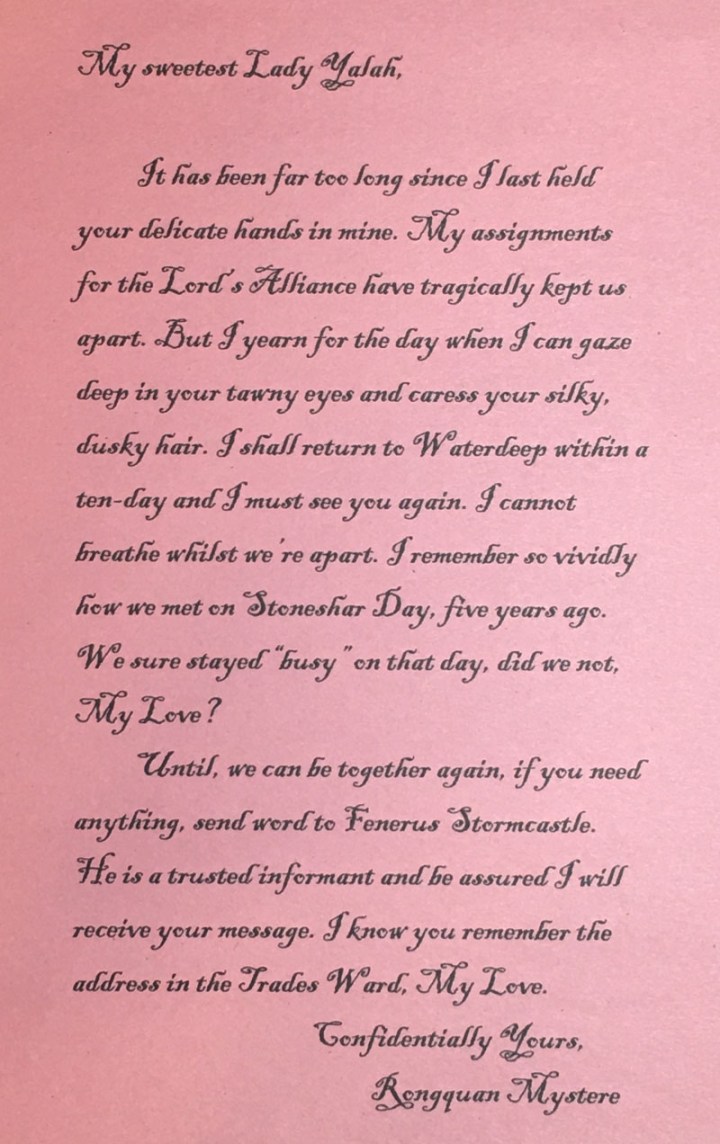 My sweetest Lady Yalah,
It has been far too long since I last held
your delicate hands in mine. My assignments
for the Lord's Alliance have tragically kept us
apart. But I yearn for the day when I can gaze
deep in your tawny eyes and caress your silky,
dusky hair. I shall return to Waterdeep within a
ten-day and I must see you again. I cannot
breathe whilst we're apart. I remember so vividly
how we met on Stoneshar Day, five years ago.
We sure stayed "busy" on that day, did we not,
My Love?
Until, we can be together again, if you need
anything, send word to Fenerus Stormcastle.
He is a trusted informant and be assured I will
receive your message. I know you remember the
address in the Trades Ward, My Love.
Confidentially Yours,
Rongquan Mystere